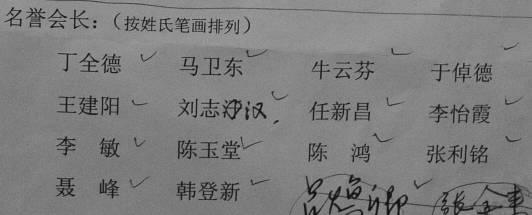 名誉会长：（按姓氏笔画排列）
丁全德 马卫东 牛云芬 于倬德
王建阳 刘志汉 任新昌 李怡霞
李 敏 陈玉堂 陈 鸿 张利铭
聂 峰 韩登新